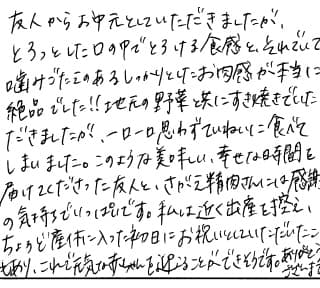 友人からお中元としていただきましたが、
とろっとした口の中でとろける食感と、それでいて
噛みごたえのあるしっかりとしたお肉感が本当に
絶品でした!!地元の野菜と共にすき焼きでいた
だきましたが、一口一口思わずていねいに食べて
しまいました。このような美味しい、幸せな時間を
届けてくださった友人と、さがえ精肉さんには感謝
の気持ちでいっぱいです。私は近く出産を控え、
ちょうど産休に入った初日にお祝いとしていただいたこ
ともあり、これで元気な赤ちゃんを迎えることができそうです。ありがとう
ございます